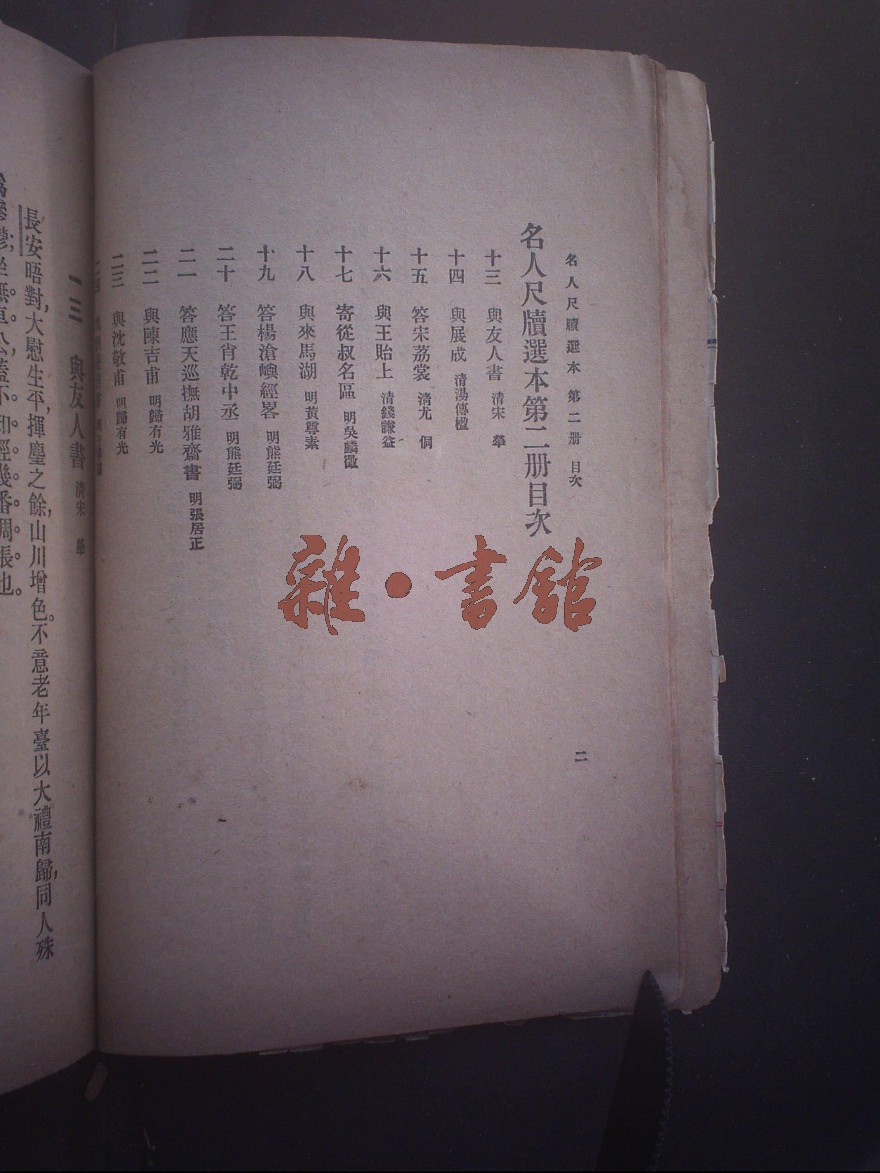 名人尺牘選本 第二册 目次
名人尺牘選本第二册目次
十三 與友人書 清宋 犖
十四 與展成 清湯傳楹
十五 答宋荔裳 清尤 侗
十六 與王貽上 清錢謙益
十七 寄從叔名區 明吳麟徵
十八 與來馬湖 明黃尊素
十九 答楊滄嶼經畧 明熊廷弼
二十 答王肖乾中丞 明熊廷弼
二一 答應天巡撫胡雅齋書 明張居正
二二 與陳吉甫 明歸有光
二三 與沈敬甫 明歸有光
二
雜·書館
一三 與友人書 清宋 犖
長安晤對,大慰生平,揮麈之餘,山川增色。不意老年臺以大禮南歸,同人殊